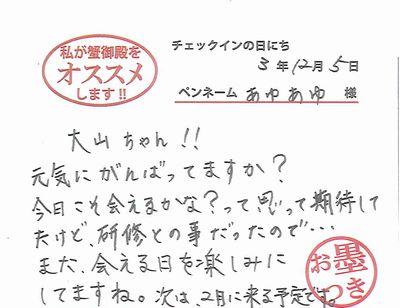 私が蟹御殿を
オススメ
します!!
チェックインの日にち
3年12月5日
ペンネーム あゆあゆ 様
大山ちゃん!!
元気にがんばってますか?
今日こそ会えるかな?って思って期待して
たけど、研修との事だったので…
また、会える日を楽しみに
してますね。次は、2月に来る予定ですね
お墨
つき